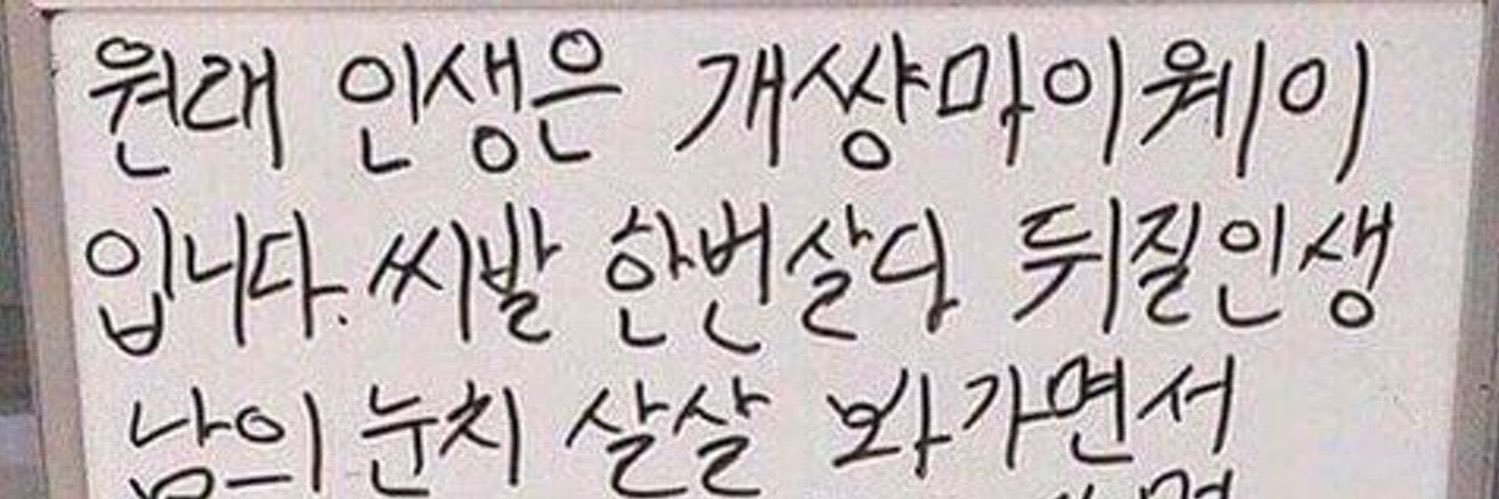 원래 인생은 개썅마이웨이
입니다. 씨발 한번살다 뒤질인생
남의 눈치 살살 봐가면서